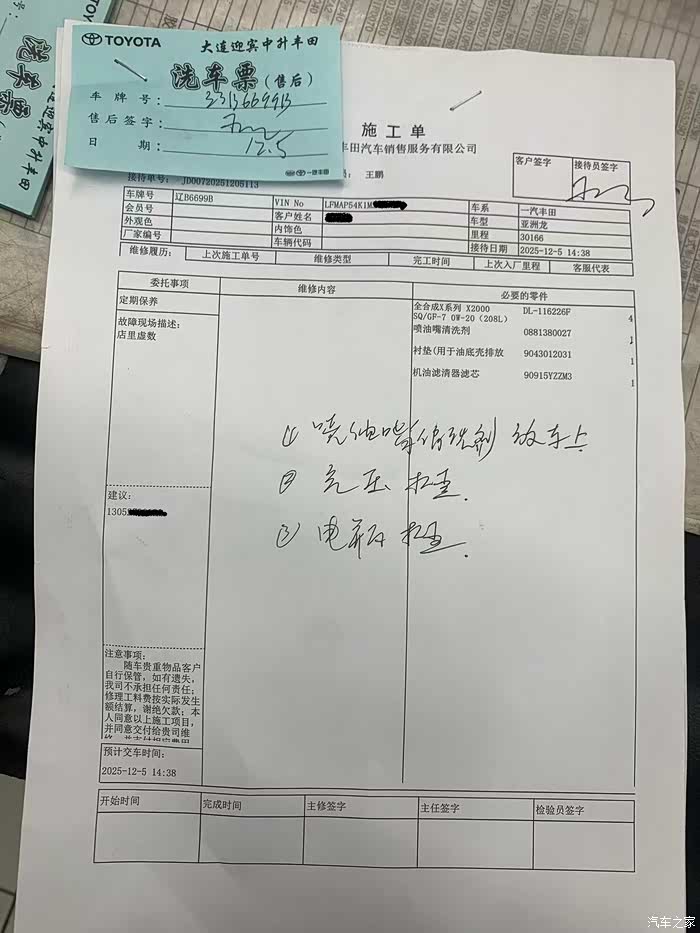 TOYOTA 大连迎宾中升丰田
洗车票(售后)
车牌号:
售后签字:
日期: 12.5
一汽丰田
施工单
丰田汽车销售服务有限公司
客户签字 接待员签字
接待单号: JD00720251205113 员: 王鹏
车牌号 辽B6699B VIN No LFMAP54K1M 车系 一汽丰田
会员号 客户姓名 车型 亚洲龙
外观色 内饰色 里程 30166
厂家编号 车辆代码 接待日期 2025-12-5 14:38
维修履历: 上次施工单号 维修类型 完工时间 上次入厂里程 客服代表
委托事项 维修内容 必要的零件
定期保养
故障现场描述:
店里虚数
全合成X系列 X2000 DL-116226F
SQ/GF-7 0W-20 (208L) 4
喷油嘴清洗剂 0881380027 1
衬垫(用于油底壳排放 9043012031 1
机油滤清器滤芯 90915YZZM3 1
① 喷油嘴清洗剂 放车上
② 气压 检查.
③ 电瓶 检查.
建议:
1305
注意事项:
随车贵重物品客户
自行保管, 如有遗失,
我司不承担任何责任;
修理工料费按实际发生
额结算, 谢绝欠款; 本
人同意以上施工项目,
并同意交付给贵司维
修, 并支付相应费用
预计交车时间:
2025-12-5 14:38
开始时间 完成时间 主修签字 主任签字 检验员签字
TOYOTA
洗车票
迎宾中升丰田
汽车之家